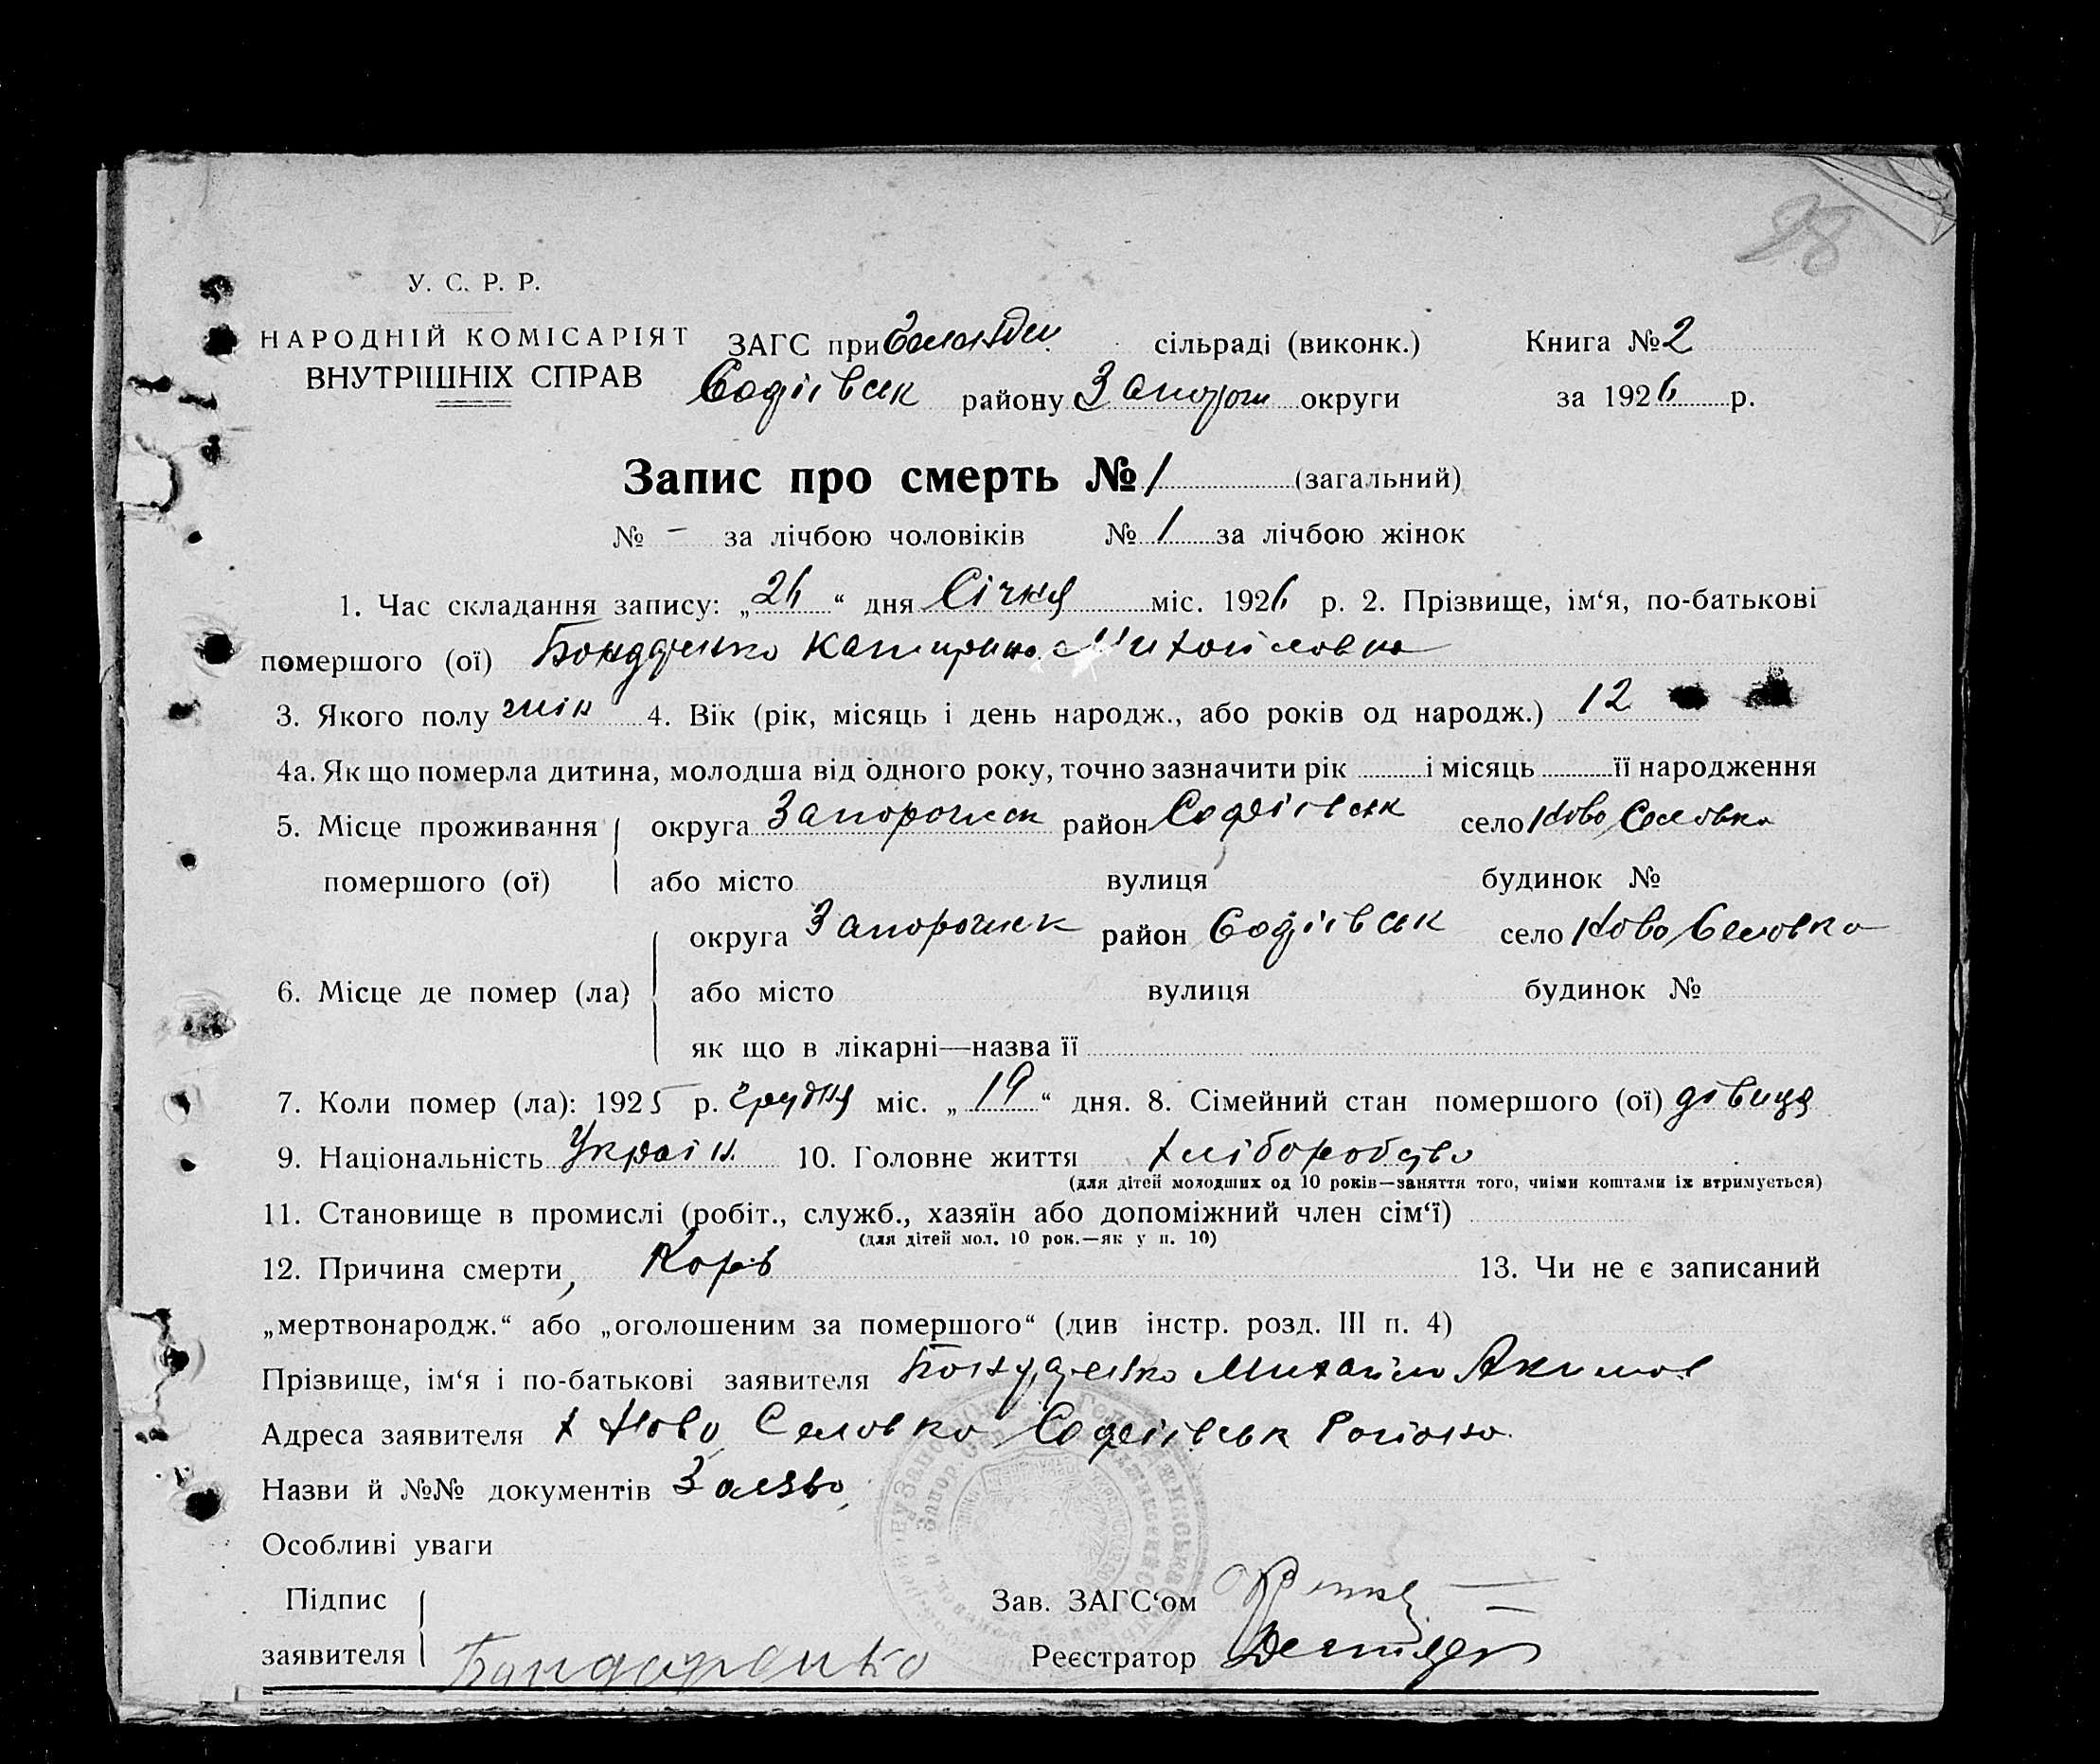 98
У. С. Р. Р.
НАРОДНІЙ КОМІСАРІЯТ
ВНУТРІШНІХ СПРАВ
ЗАГС при сільраді (виконк.) Книга № 2
Софіівськ району Запорож округи за 1926 р.
Запис про смерть № 1 (загальний)
№ – за лічбою чоловіків № 1 за лічбою жінок
1. Час складання запису: „26“ дня Січня міс. 1926 р. 2. Прізвище, ім‘я, по-батькові
помершого (ої) Бондаренко Катирина Михайловна
3. Якого полу жін 4. Вік (рік, місяць і день народж., або років од народж.) 12
4а. Як що померла дитина, молодша від одного року, точно зазначити рік і місяць її народження
5. Місце проживання округа Запорожск район Софіівськ село Ново
помершого (ої) або місто вулиця будинок №
округа Запорожск район Софіівськ село Ново
6. Місце де помер (ла) або місто вулиця будинок №
як що в лікарні—назва її
7. Коли помер (ла): 1925 р. грудня міс. „19“ дня. 8. Сімейний стан помершого (ої) дівиця
9. Національність Україн. 10. Головне життя хліборобство
(для дітей молодших од 10 років—заняття того, чиїми коштами їх втримується)
11. Становище в промислі (робіт., служб., хазяїн або допоміжний член сім‘ї)
(для дітей мол. 10 рок.—як у п. 10)
12. Причина смерти, Корь 13. Чи не є записаний
„мертвонародж.“ або „оголошеним за помершого“ (див інстр. розд. III п. 4)
Прізвище, ім‘я і по-батькові заявителя Бондаренко Михайло Акимов
Адреса заявителя х Ново Софіівськ Району
Назви й №№ документів
Особливі уваги
Підпис Зав. ЗАГС‘ом
заявителя Бондаренко Реєстратор